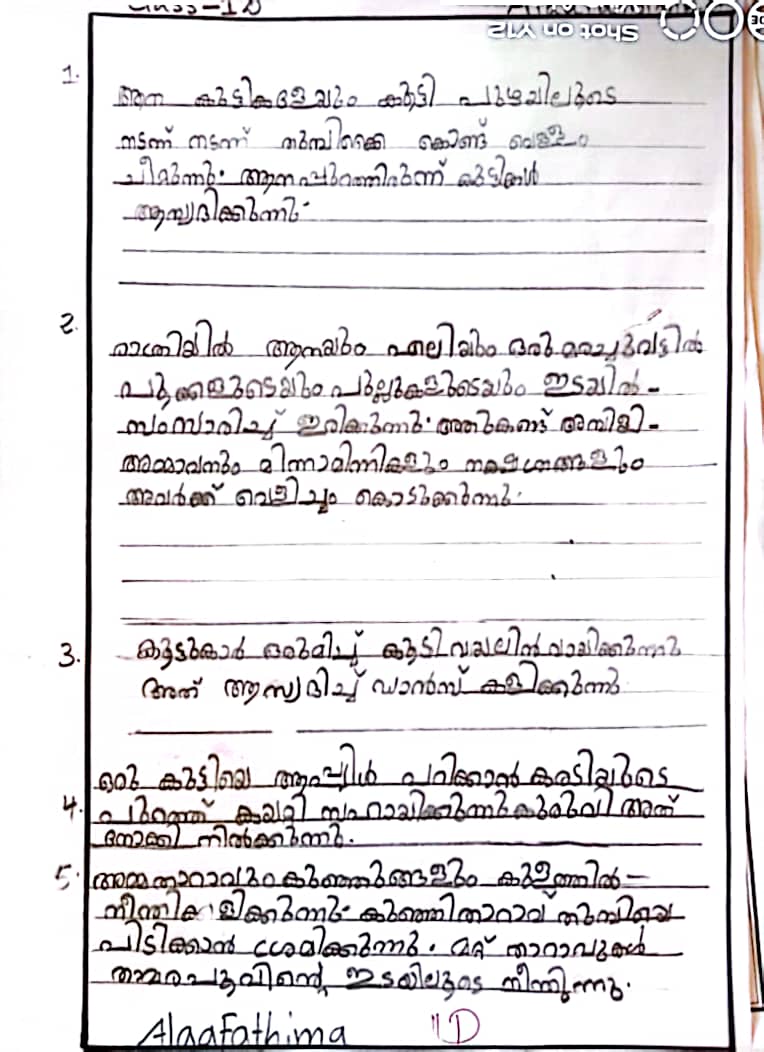 Class-1D
Shot on Y12
1.
ആന കുട്ടികളേയും കൂട്ടി പുഴയിലൂടെ
നടന്ന് നടന്ന് തുമ്പിക്കൈ കൊണ്ട് വെള്ളം
ചീറ്റുന്നു. ആനപ്പുറത്തിരുന്ന് കുട്ടികൾ
ആസ്വദിക്കുന്നു.
2.
രാത്രിയിൽ ആനയും എലിയും ഒരു മരച്ചുവട്ടിൽ
പൂക്കളുടെയും പുല്ലുകളുടെയും ഇടയിൽ-
സംസാരിച്ച് ഇരിക്കുന്നു. അതുകണ്ട് അമ്പിളി-
അമ്മാവനും മിന്നാമിന്നികളും നക്ഷത്രങ്ങളും
അവർക്ക് വെളിച്ചം കൊടുക്കുന്നു.
3.
കൂട്ടുകാർ ഒരുമിച്ച് കൂടി വയലിൻ വായിക്കുന്നു
അത് ആസ്വദിച്ച് ഡാൻസ് കളിക്കുന്നു
ഒരു കുട്ടിയെ ആപ്പിൾ പറിക്കാൻ കരടിയുടെ
4. പുറത്ത് കയറ്റി സഹായിക്കുന്നു കുരുവി അത്
നോക്കി നിൽക്കുന്നു.
5. അമ്മതാറാവും കുഞ്ഞുങ്ങളും കുളത്തിൽ-
നീന്തികളിക്കുന്നു. കുഞ്ഞിതാറാവ് തുമ്പിയെ
പിടിക്കാൻ ശ്രമിക്കുന്നു. മറ്റ് താറാവുകൾ
താമരപൂവിന്റെ ഇടയിലൂടെ നീന്തുന്നു.
Alaafathima 1D